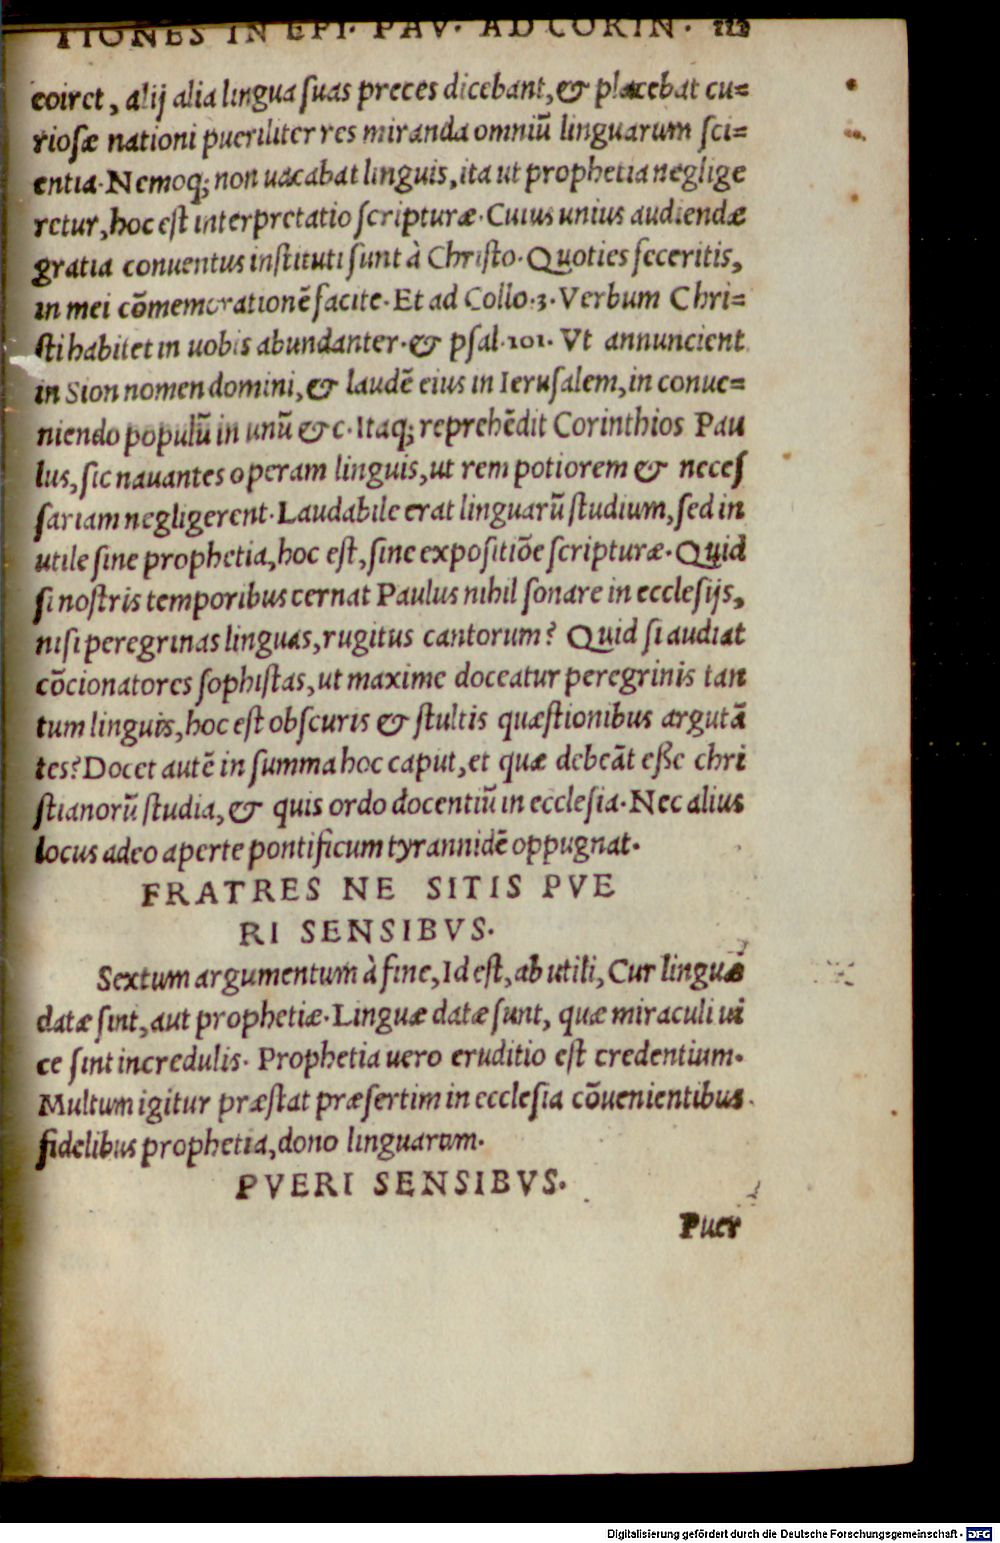 TIONES IN EPI. PAV. AD CORIN. 112
coiret, alij alia lingua suas preces dicebant, & placebat cu=
riosæ nationi pueriliter res miranda omniū linguarum sci=
entia. Nemoq; non uacabat linguis, ita ut prophetia neglige
retur, hoc est interpretatio scripturæ. Cuius unius audiendæ
gratia conuentus instituti sunt à Christo. Quoties feceritis,
in mei cōmemorationē facite. Et ad Collo.3. Verbum Chri=
sti habitet in uobis abundanter. & psal.101. Vt annuncient
in Sion nomen domini, & laudē eius in Ierusalem, in conue=
niendo populū in unū &c. Itaq; reprehēdit Corinthios Pau
lus, sic nauantes operam linguis, ut rem potiorem & neces
sariam negligerent. Laudabile erat linguarū studium, sed in
utile sine prophetia, hoc est, sine expositiōe scripturæ. Quid
si nostris temporibus cernat Paulus nihil sonare in ecclesijs,
nisi peregrinas linguas, rugitus cantorum? Quid si audiat
cōcionatores sophistas, ut maxime doceatur peregrinis tan
tum linguis, hoc est obscuris & stultis quæstionibus argutā
tes? Docet autē in summa hoc caput, et quæ debeāt esse chri
stianorū studia, & quis ordo docentiū in ecclesia. Nec alius
locus adeo aperte pontificum tyrannidē oppugnat.
FRATRES NE SITIS PVE
RI SENSIBVS.
Sextum argumentum à fine, Id est, ab utili, Cur linguæ
datæ sint, aut prophetiæ. Linguæ datæ sunt, quæ miraculi ui
ce sint incredulis. Prophetia uero eruditio est credentium.
Multum igitur præstat præsertim in ecclesia cōuenientibus
fidelibus prophetia, dono linguarum.
PVERI SENSIBVS.
Puer
Digitalisierung gefördert durch die Deutsche Forschungsgemeinschaft - DFG